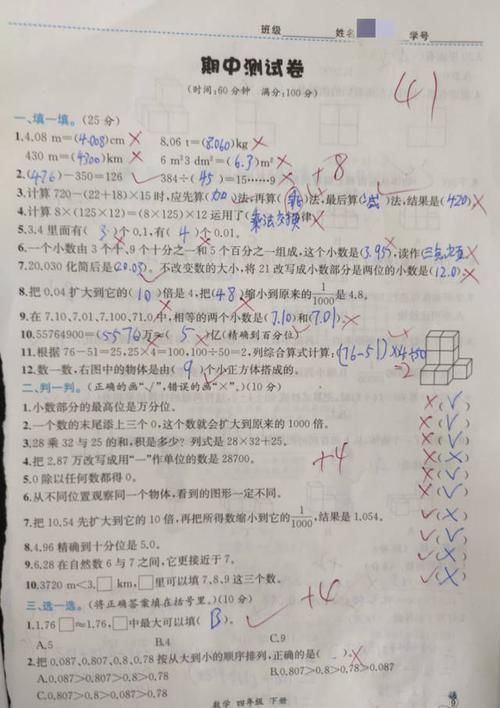 班级 姓名 学号
期中测试卷
(时间:60分钟 满分:100分)
41
一、填一填。(25分)
1.4.08 m=(4.008)cm × 8.06 t=(8.060)kg ×
430 m=(4300)km × 6 m²3 dm²=(6.3)m² ×
+8
2.(476)-350=126 ✓ 384÷(45)=15……9 ×
3.计算720-(22+18)×15时,应先算(加)法,再算(乘)法,最后算(减)法,结果是(420)×
4.计算8×(125×12)=(8×125)×12运用了(乘法交换)律×
5.3.4里面有(3)个0.1,有(4)个0.01。
6.一个小数由3个十、9个十分之一和5个百分之一组成,这个小数是(3.95),读作(三点九五)
7.20.030化简后是(20.03)。不改变数的大小,将21改写成小数部分是两位的小数是(12.0)。
8.把0.04扩大到它的(10)倍是4,把(48)缩小到原来的1/1000是4.8。
9.在7.10、7.01、7.100、71.0中,相等的两个小数是(7.10)和(7.01)。
10.55764900=(5576)万≈(5)亿(精确到百分位)
11.根据76-51=25,25×4=100,100÷50=2,列综合算式计算:(76-51)×4÷50
=2
12.数一数,右图中的物体是由(9)个小正方体搭成的。
二、判一判。(正确的画“√”,错误的画“×”。)(10分)
1.小数部分的最高位是万分位。 ×(√)
2.一个数的末尾添上三个0,这个数就会扩大到原来的1000倍。 ×(√)
3.28乘32与25的和,积是多少?列式是28×32+25。 ×(√)
4.把2.87万改写成用“一”作单位的数是28700。 +4 ×(×)
5.0除以任何数都得0。 ×(√)
6.从不同位置观察同一个物体,看到的图形一定不同。 ×(√)
7.把10.54先扩大到它的10倍,再把所得数缩小到它的1/1000,结果是1.054。 ✓(×)
8.4.96精确到十分位是5.0。 ✓(√)
9.6.28在自然数6与7之间,它更接近于7。 ✓(×)
10.3720 m<3.□ km,□里可以填7、8、9这三个数。 ✓(×)
三、选一选。(将正确答案填在括号里。)(10分) +4
1.1.76□≈1.76,□中最大可以填(B)。 ✓
A.5 B.4 C.9
2.把0.087、0.807、0.8、0.78按从大到小的顺序排列,正确的是( )。×
A.0.087>0.807>0.8>0.78 B.0.807>0.8>0.78>0.087
C.0.807>0.8>0.087>0.78
数学 四年级 下册
9